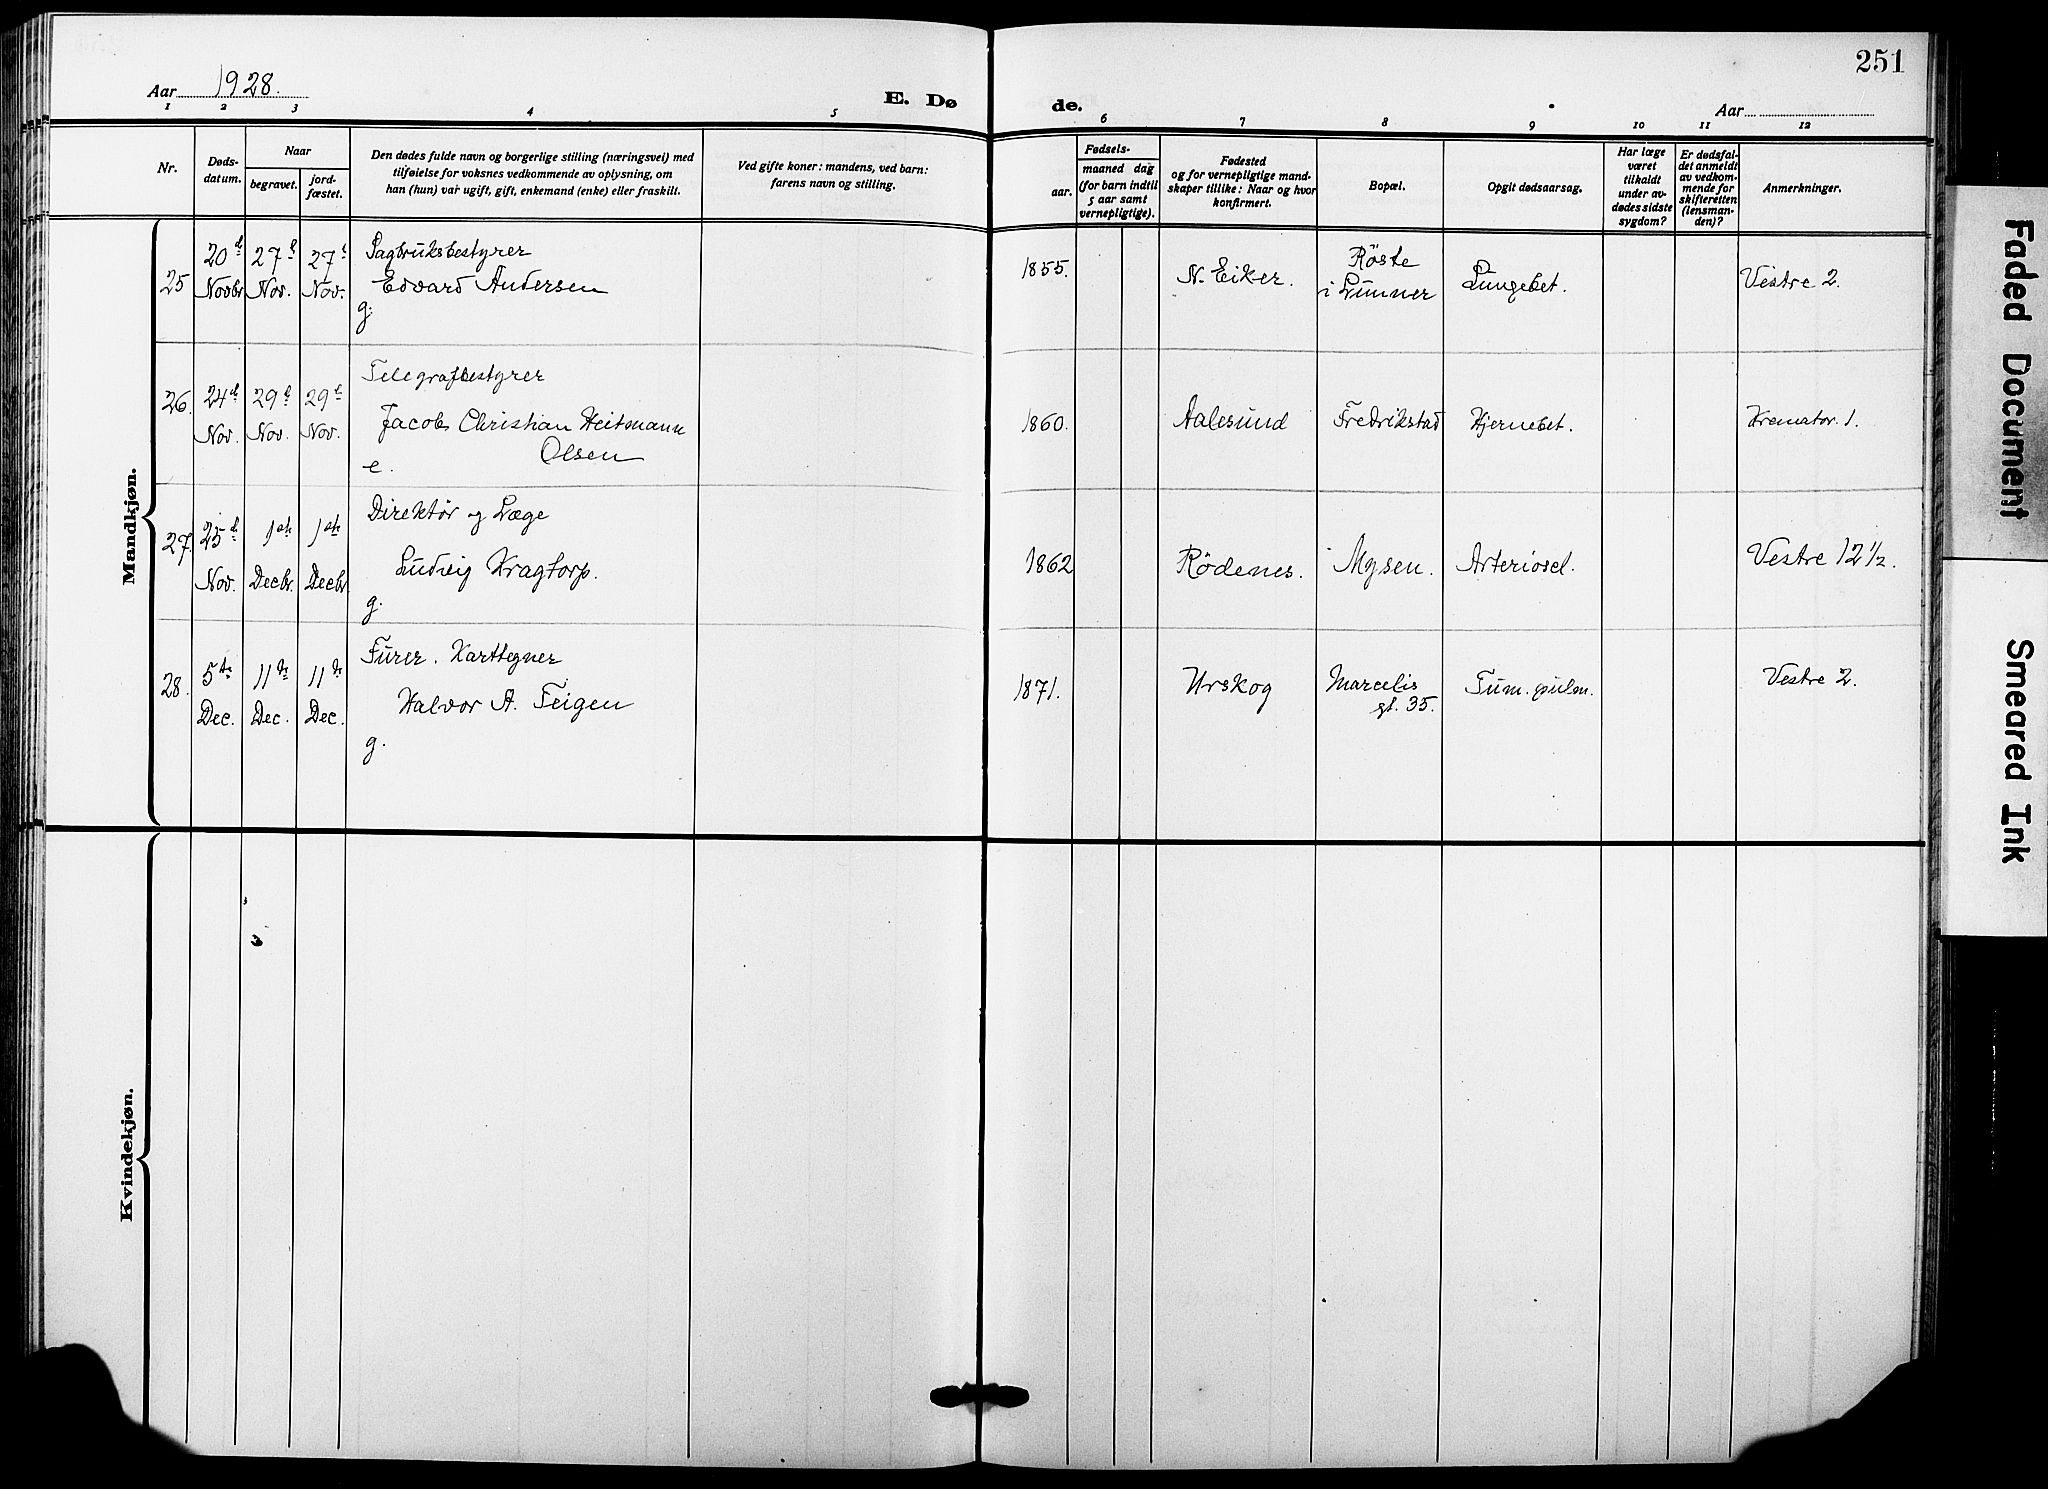 251
Aar 1928.
E. Dø
de.
Aar
1 2 3 4 5 6 7 8 9 10 11 12
Nr.
Døds-
datum.
Naar
begravet.
jord-
fæstet.
Den dødes fulde navn og borgerlige stilling (næringsvei) med
tilføielse for voksnes vedkommende av oplysning, om
han (hun) var ugift, gift, enkemand (enke) eller fraskilt.
Ved gifte koner: mandens, ved barn:
farens navn og stilling.
Fødsels-
aar.
maaned dag
(for barn indtil
5 aar samt
vernepligtige).
Fødested
og for vernepligtige mand-
skaper tillike: Naar og hvor
konfirmert.
Bopæl.
Opgit dødsaarsag.
Har læge
været
tilkaldt
under av-
dødes sidste
sygdom?
Er dødsfal-
det anmeldt
av vedkom-
mende for
skifteretten
(lensman-
den)?
Anmerkninger.
Mandkjøn.
25
20d
Novbr
27d
Nov.
27d
Nov.
Sagbruksbestyrer
Edvard Andersen
g.
1855.
N. Eiker.
Röste
i Lunner
Lungebet.
Vestre 2.
26.
24d
Nov.
29d
Nov.
29d
Nov.
Telegrafbestyrer
Jacob Christian Heitmann
Olsen
e.
1860.
Aalesund
Fredrikstad
Hjernebet.
Kremator. 1.
27.
25d
Nov.
1ste
Decbr.
1ste
Decbr.
Direktør og Læge
Ludvig Kragtorp.
g.
1862
Rödenes.
Mysen.
Arterioscl.
Vestre 12 1/2.
28.
5te
Dec.
11te
Dec.
11te
Dec.
Furer. Karttegner
Halvor A. Teigen
g.
1871.
Urskog
Marcelis
gt. 35.
Tum. pulm.
Vestre 2.
Kvindekjøn.
Faded Document
Smeared Ink